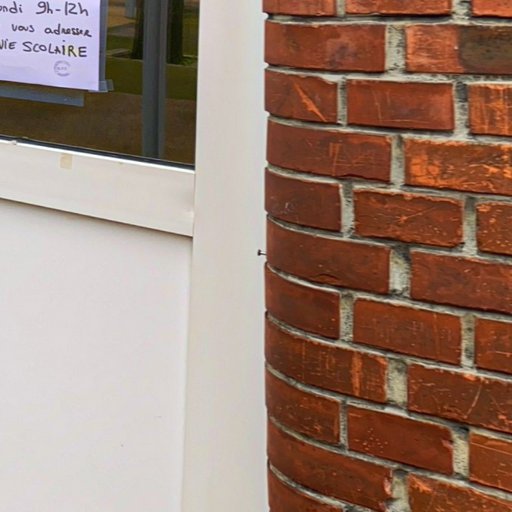 ndi 9h-12h
vous adresser
VIE SCOLAIRE